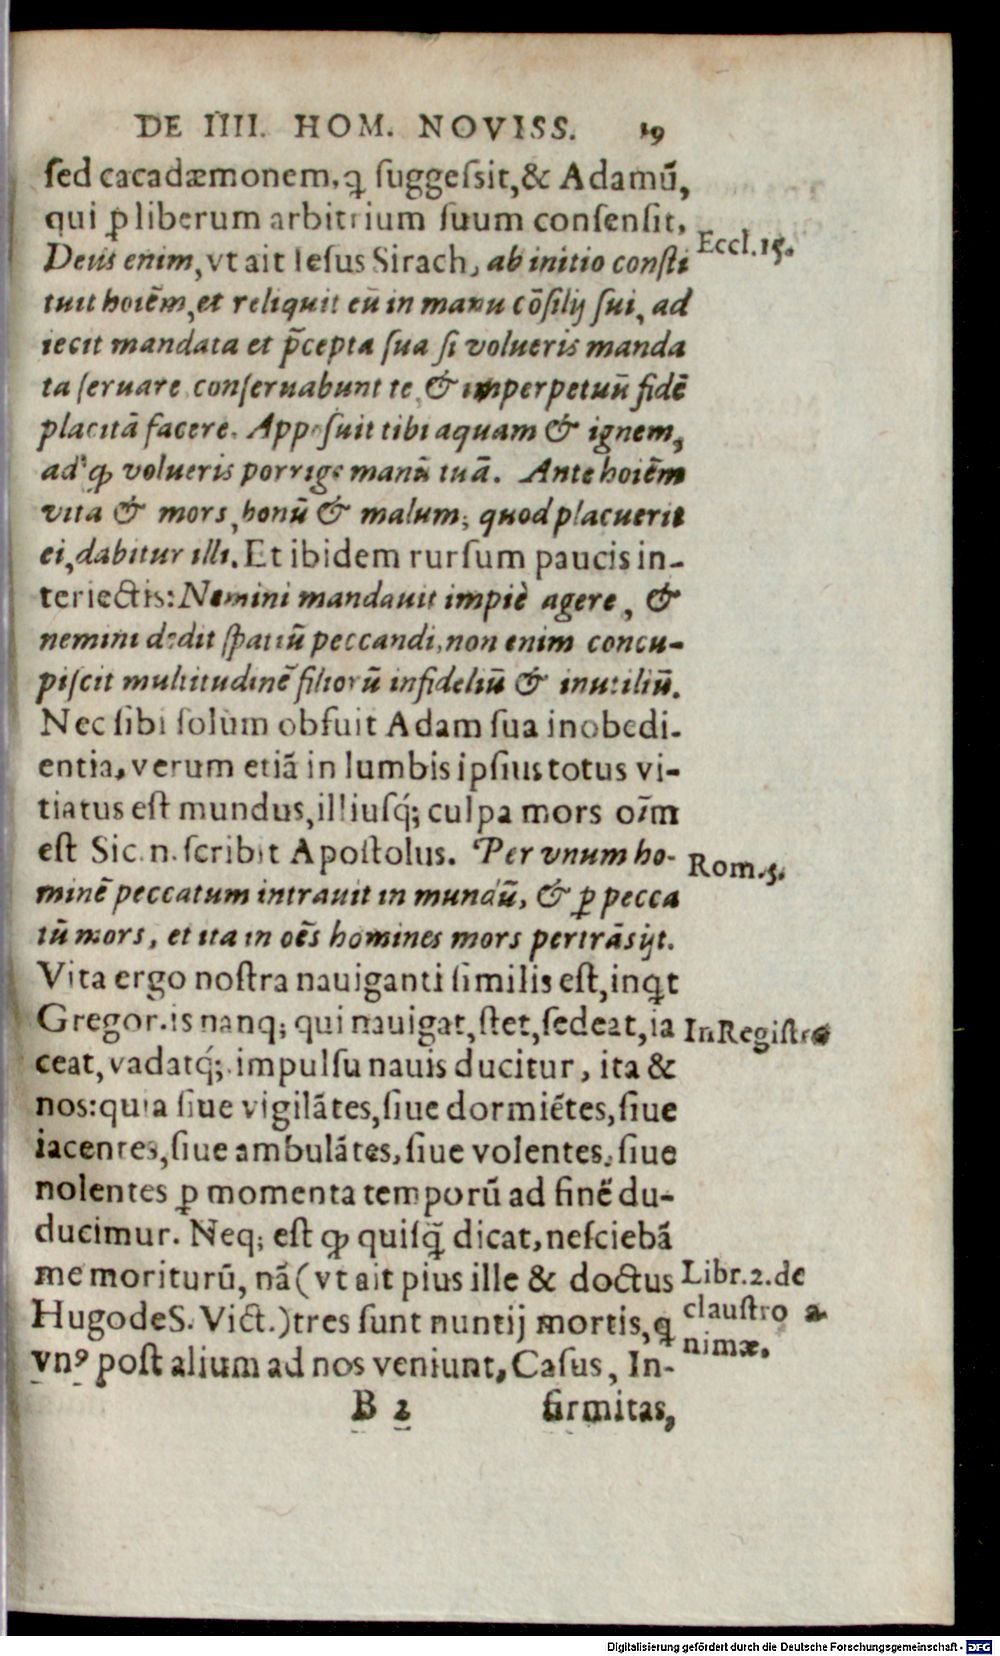 DE IIII. HOM. NOVISS. 19
sed cacadæmonem, ꝗ suggessit, & Adamū,
qui ꝑ liberum arbitrium suum consensit,
Deus enim, vt ait Iesus Sirach, ab initio consti
Eccl. 15.
tuit hoiēm, et reliquit eū in manu cōsilij sui, ad
iecit mandata et p̄cepta sua si volueris manda
ta seruare conseruabunt te, & imperpetuū fidē
placitā facere. Apposuit tibi aquam & ignem,
ad qͦ volueris porrige manū tuā. Ante hoiēm
vita & mors, bonū & malum, quod placuerit
ei, dabitur illi. Et ibidem rursum paucis in-
teriectis: Nemini mandauit impiè agere, &
nemini dedit spatiū peccandi, non enim concu-
piscit multitudinē filiorū infideliū & inutiliū.
Nec sibi solùm obfuit Adam sua inobedi-
entia, verum etiā in lumbis ipsius totus vi-
tiatus est mundus, illiusq́; culpa mors oīm
est Sic. n. scribit Apostolus. Per vnum ho-
Rom. 5.
minē peccatum intrauit in mundū, & ꝑ pecca
tū mors, et ita in oēs homines mors pertrāsijt.
Vita ergo nostra nauiganti similis est, inqt
Gregor. is nanq; qui nauigat, stet, sedeat, ia
In Registro
ceat, vadatq́; impulsu nauis ducitur, ita &
nos: quia siue vigilātes, siue dormiētes, siue
iacentes, siue ambulātes, siue volentes, siue
nolentes ꝑ momenta temporū ad finē du-
ducimur. Neq; est ꝙ quisq̄ dicat, nesciebā
me moriturū, nā (vt ait pius ille & doctus
Libr. 2. de
Hugo de S. Vict.) tres sunt nuntij mortis, ꝗ
claustro a-
nimæ.
vnꝰ post alium ad nos veniunt, Casus, In-
B 2 firmitas,
Digitalisierung gefördert durch die Deutsche Forschungsgemeinschaft - DFG